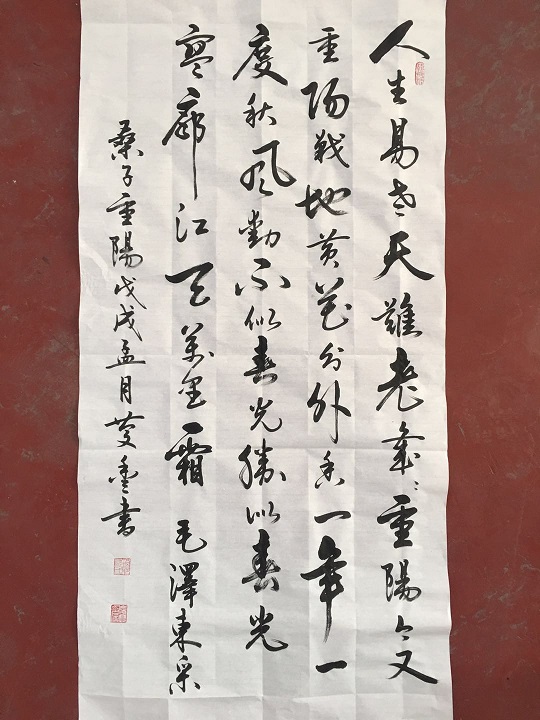 人生易老天難老歲々重陽今又
重阳戰地黄花分外香一年一
度秋风勁不似春光勝似春光
寥廓江天萬里霜 毛澤東采
桑子重陽戊戌孟月書